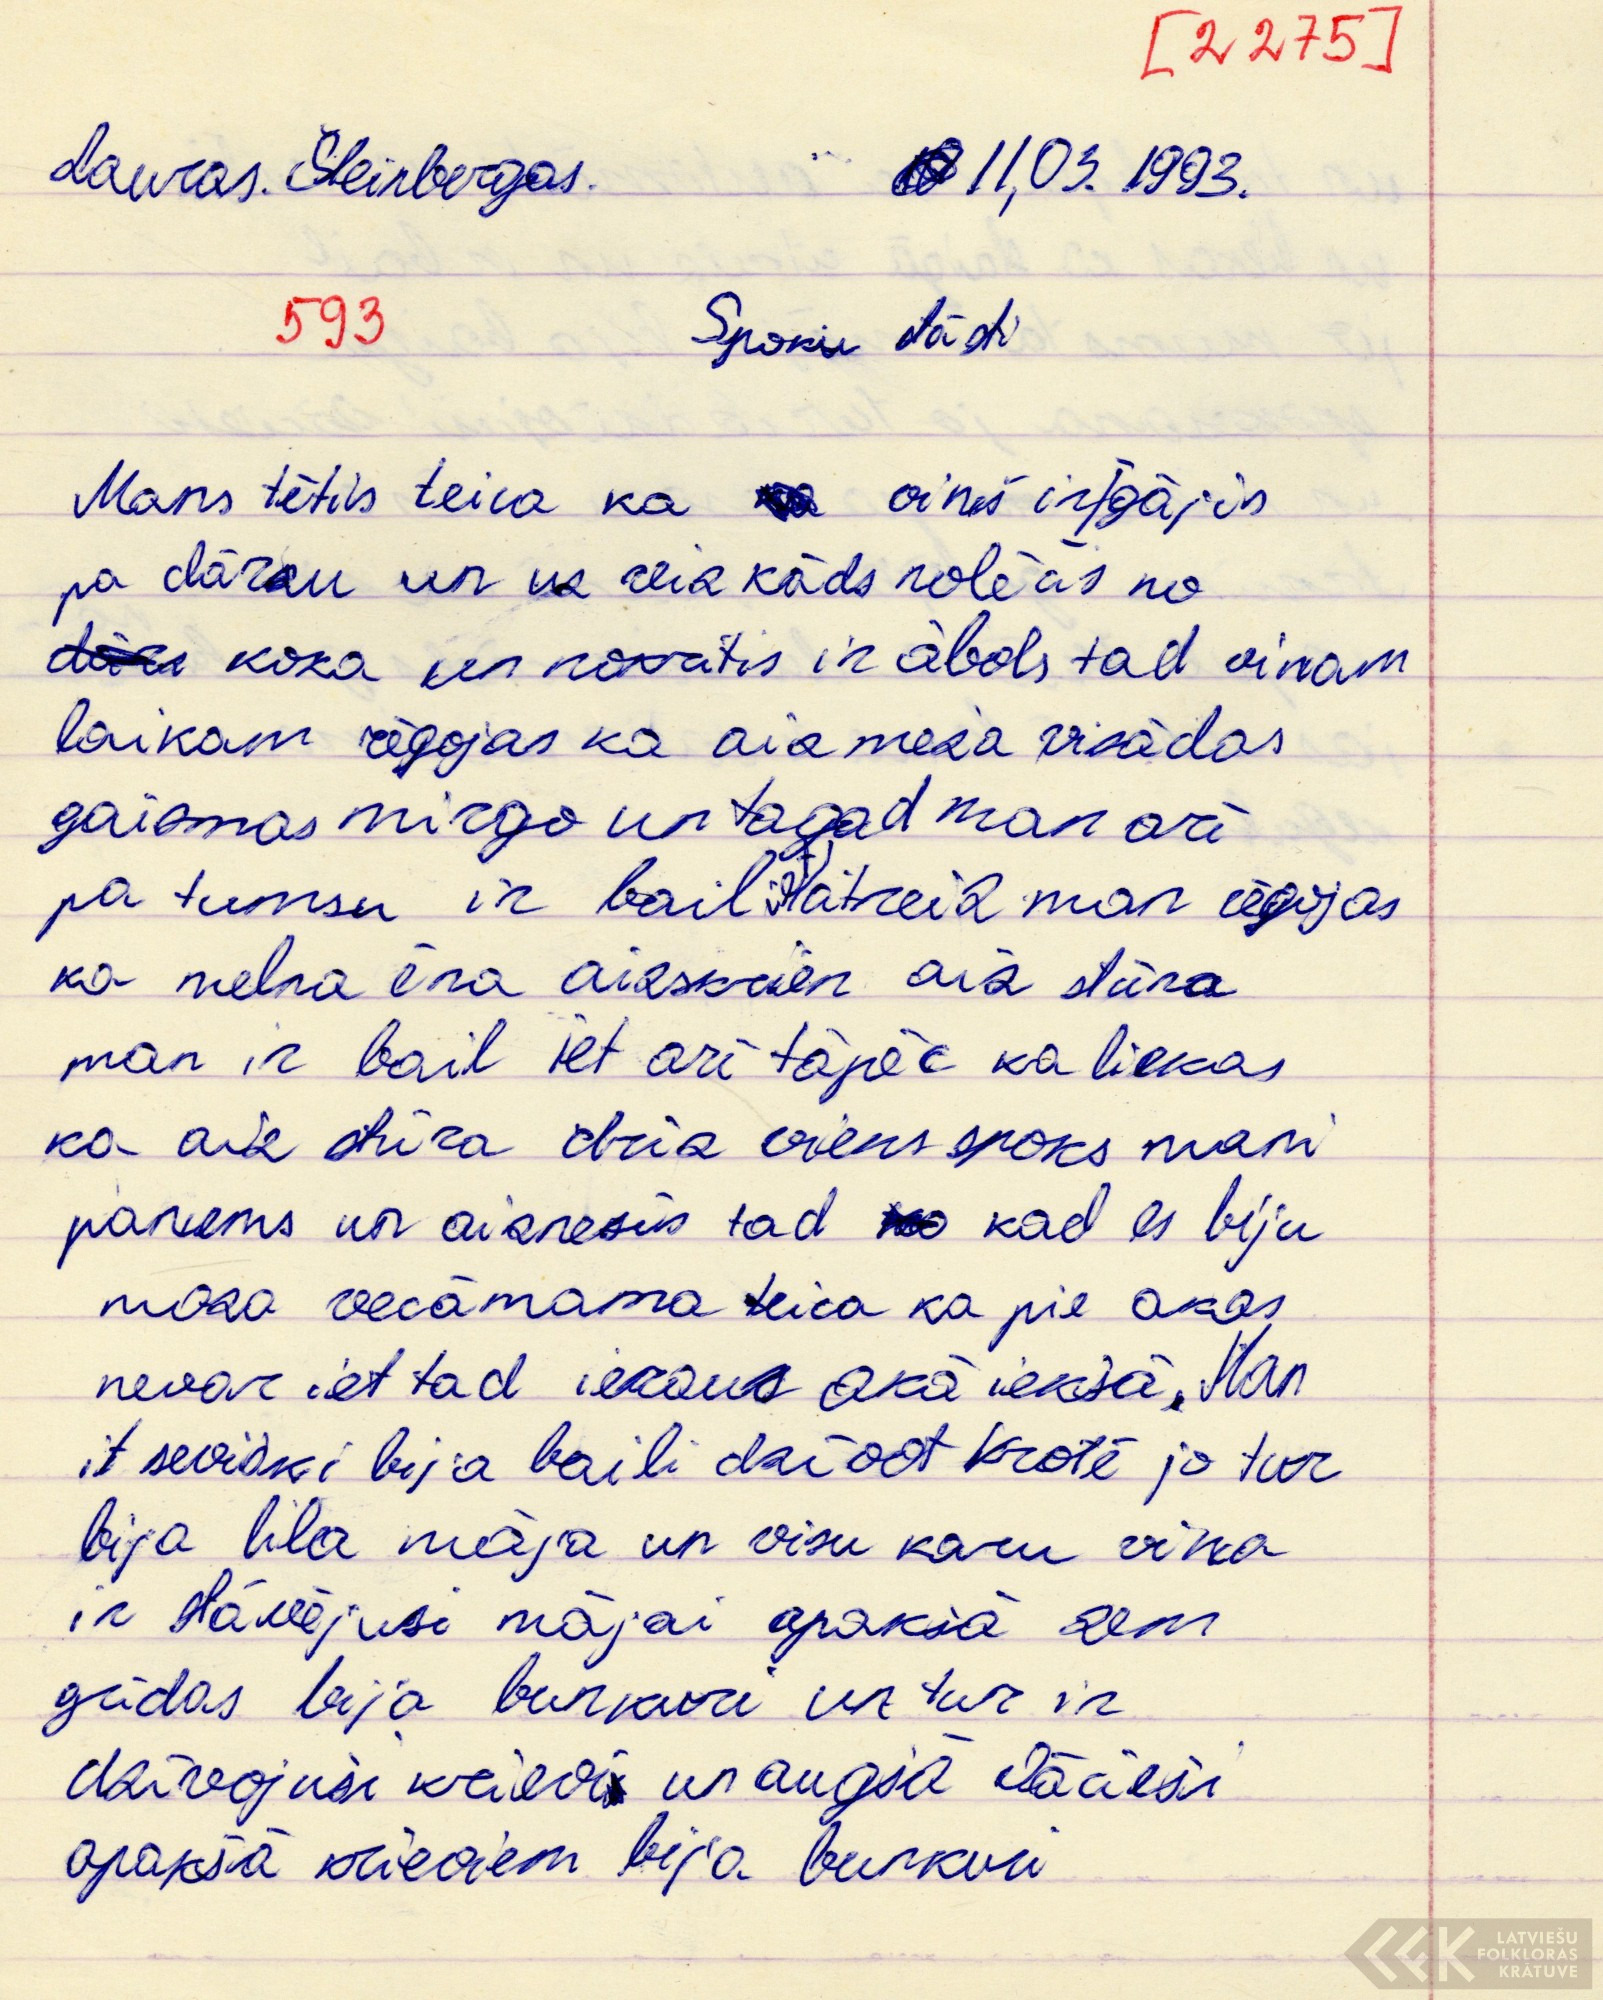 [2275]
Lauras. Šteinbergas. 11,03. 1993.
593 Spoku stāsti
Mans tētis teica ka viņš ir gājis
pa dārzu un uz reiz kāds nolēcis no
koka un novītis ir ābols tad viņam
laikam rēgojas ka aiz meža visādas
gaismas mirgo un tagad man arī
pa tumsu ir baili Vairreiz man rēgojas
ka melna ēna aizskrien aiz stūra
man ir bail iet arī tāpēc ka liekas
ka aiz stūra drīz viens spoks mani
paņems un aiznesīs tad kad es biju
maza vecāmama teica ka pie akas
nevar iet tad ieraus akā iekšā. Man
it sevišķi bija baili dzīvot Krotē jo tur
bija liela māja un visu karu viņa
ir stāvējusi mājai apakšā zem
grīdas bija bunkuri un tur ir
dzīvojuši krievi un augšā vācieši
apakšā krieviem bija bunkuri
LATVIEŠU
FOLKLORAS
KRĀTUVE